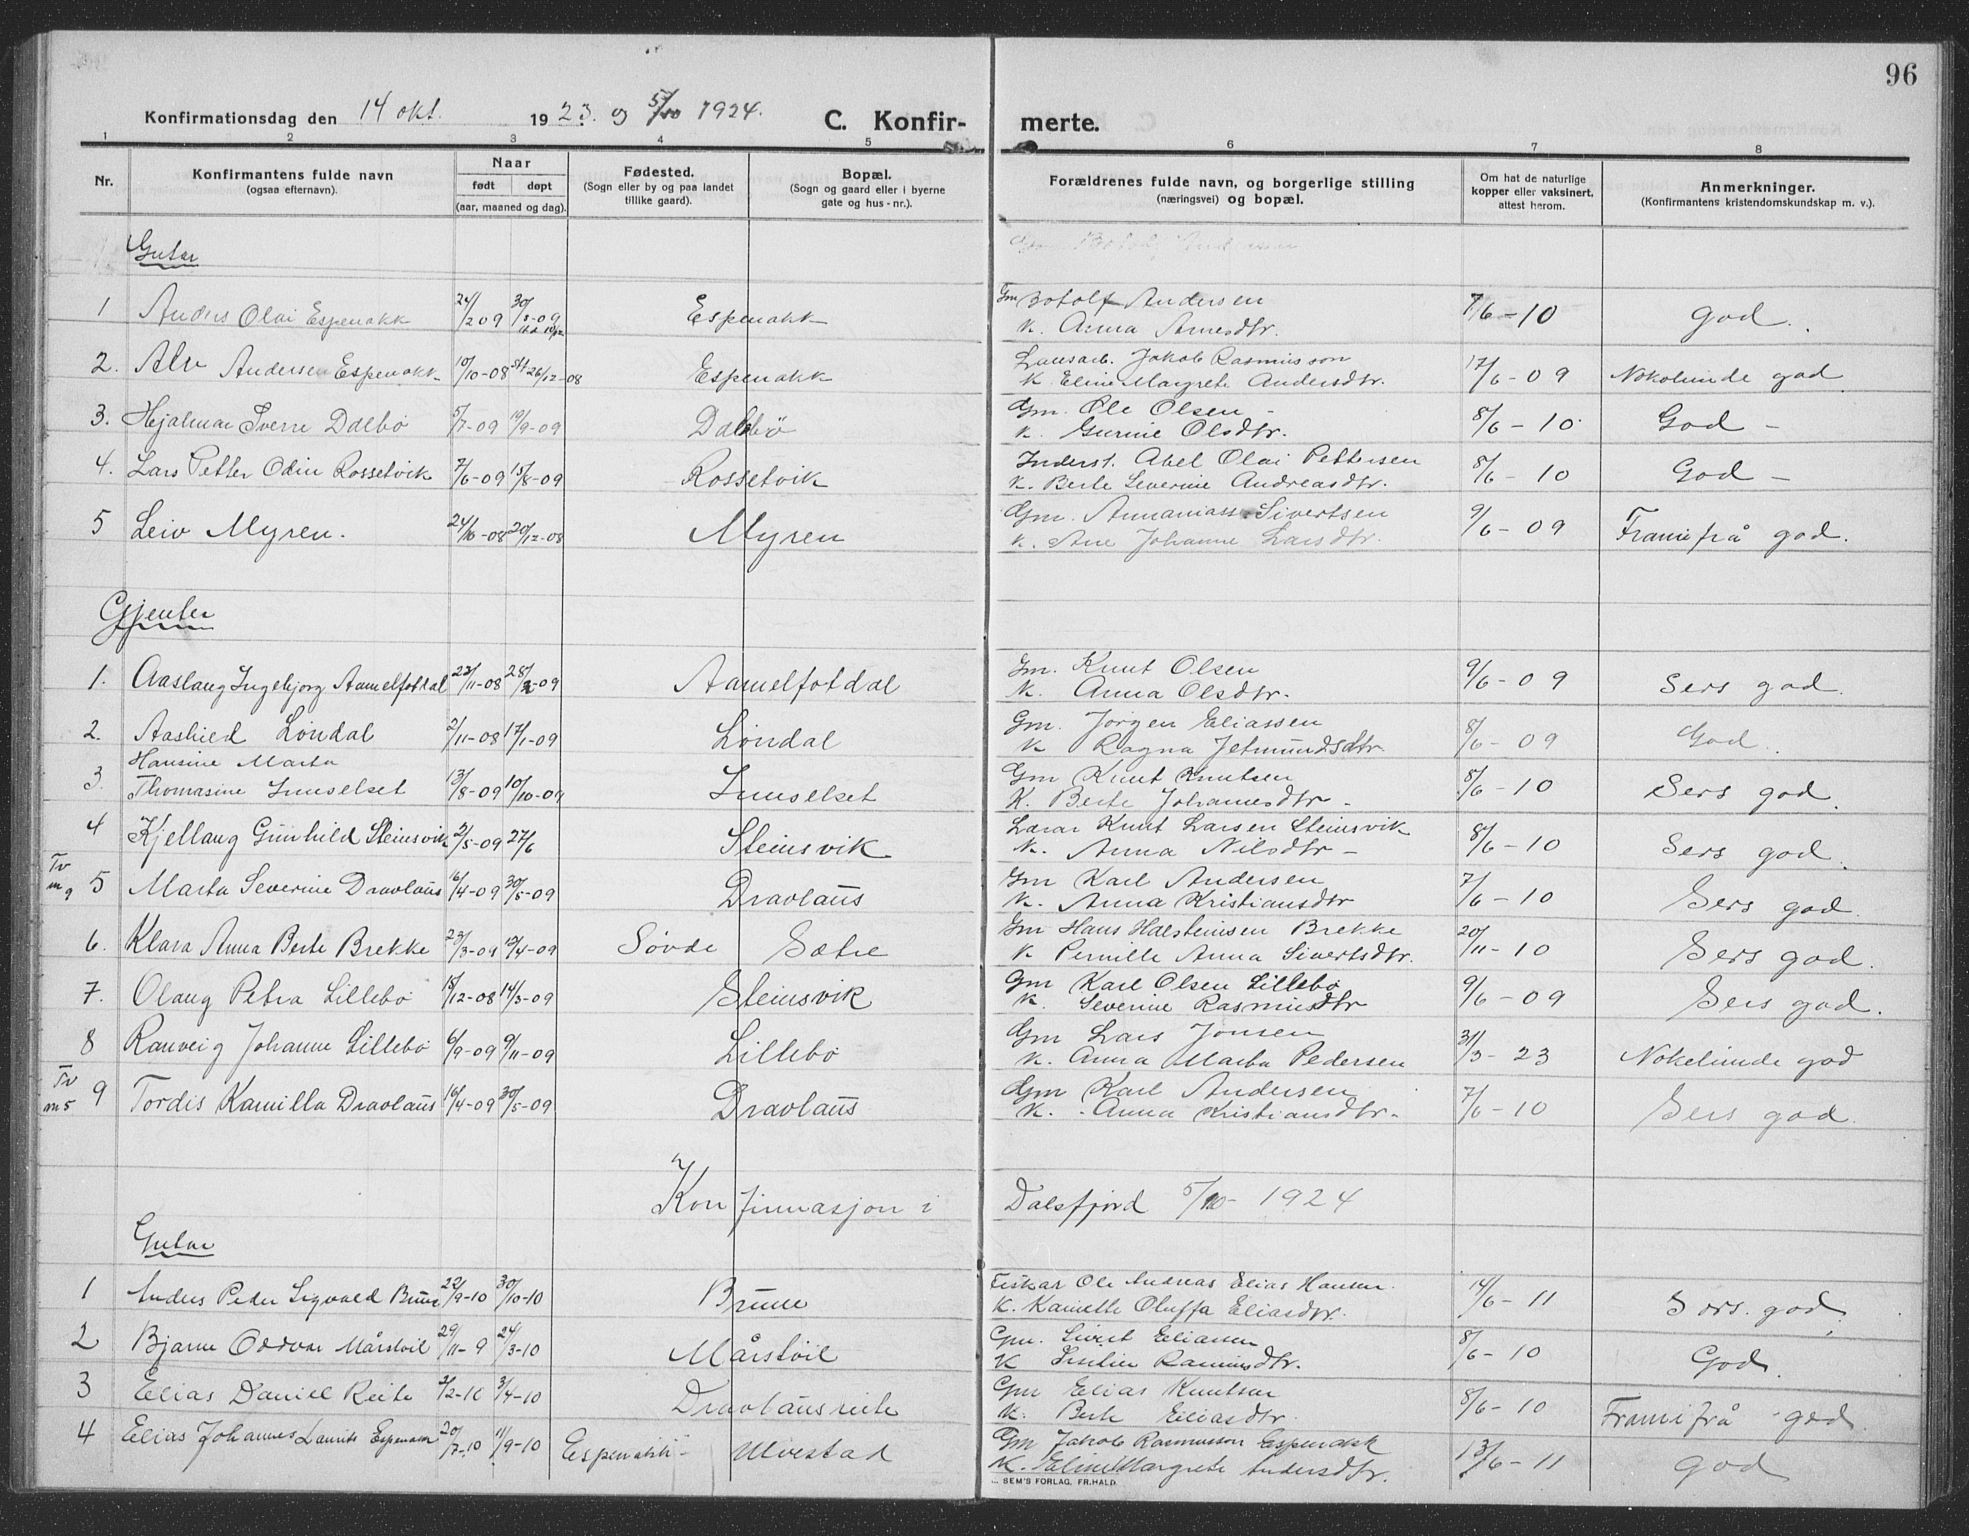 96
Konfirmationsdag den 14 okt. 1923. og 5/10 1924. C. Konfirmerte.
1 2 3 4 5 6 7 8
Nr. Konfirmantens fulde navn (ogsaa efternavn). Naar født døpt (aar, maaned og dag). Fødested. (Sogn eller by og paa landet tillike gaard). Bopæl. (Sogn og gaard eller i byerne gate og hus-nr.). Forældrenes fulde navn, og borgerlige stilling (næringsvei) og bopæl. Om hat de naturlige kopper eller vaksinert, attest herom. Anmerkninger. (Konfirmantens kristendomskundskap m. v.).
Gutar
1 Anders Olai Espenakk 24/2 09 30/3-09 Espenakk Gm Botolf Andersen 7/6-10 god.
K. Anna Arnesdtr.
2. Alv Andersen Espenakk 10/10-08 26/12-08 Espenakk Lausarb. Jakob Rasmusson 17/6-09 Nokolunde god
K Eline Margrete Andersdtr.
3. Hjalmar Sverre Dalebø 5/7-09 19/9-09 Dalebø Gm. Ole Olsen - 8/6-10 God -
K. Gurine Olsdtr.
4. Lars Petter Odin Rossetvik 7/6-09 15/8-09 Rossetvik Inderst. Abel Olai Pettersen 8/6-10 God -
K. Berte Severine Andreasdtr.
5 Leiv Myren. 24/10-08 20/12-08 Myren Gm. Annanias Sivertsen 9/6-09 Framifrå god.
K. Ane Johanne Larsdtr.
Gjenter
1. Aaslaug Ingebjorg Aamelfotdal 22/11-08 28/2-09 Aamelfotdal Gm. Knut Olsen 9/6-09 Sers god.
K. Anna Olsdtr.
2. Aashild Løndal 2/11-08 17/1-09 Løndal Gm. Jørgen Eliassen 8/6-09 God.
K Ragna Jetmundsdtr.
3. Hansine Marta Thomasine Innselset 13/8-09 10/10-09 Innselset Gm Knut Knutsen 8/6-10 Sers god.
K. Berte Johannesdtr -
4 Kjellaug Gunhild Steinsvik 2/5-09 27/6 Steinsvik Lærar Knut Larsen Steinsvik 8/6-10 Sers god.
K. Anna Nilsdtr -
Tv m 9 5 Marta Severine Dravlaus 16/4-09 30/5-09 Dravlaus Gm Karl Andersen 7/6-10 Sers god.
K. Anna Kristiansdtr
6. Klara Anna Berte Brekke 23/3-09 12/4-09 Søvde Sætre Gm Hans Halsteinsen Brekke 20/11-10 Sers god.
K Pernille Anna Sivertsdtr.
7. Olaug Petra Lillebø 18/12-08 14/3-09 Steinsvik Gm Karl Olsen Lillebø 9/6-09 Sers god.
K. Severine Rasmusdtr
8 Ranveig Johanne Lillebø 6/9-09 9/11-09 Lillebø Gm Lars Jonsen 31/3-23 Nokelunde god
K. Anna Marta Pedersen
Tv m 5 9 Tordis Kamilla Dravlaus 16/4-09 30/5-09 Dravlaus Gm Karl Andersen 7/6-10 Sers god.
K. Anna Kristiansdtr.
Konfirmasjon i Dalsfjord 5/10-1924
Gutar
1 Anders Peder Sigvald Brune 22/9-10 30/10-10 Brune Fiskar Ole Andreas Elias Hansen 14/6-11 Sers. god
K. Kamilla Oluffa Eliasdtr.
2 Bjarne Oddvar Mårstøil 29/11-9 24/3-10 Mårstøil Gm. Sivert Eliassen 8/6-10 God
K Rasmusdtr.
3 Elias Daniel Reite 2/2-10 3/4-10 Dravlausreite Gm Elias Knutsen 8/6-10 Framifrå god
K. Berte Eliasdtr.
4 Elias Johannes Laurits Espenakk 20/7-10 11/9-10 Espenakk Ulvestad Gm Jakob Rasmusson Espenakk 13/6-11 God
K. Eline Margrete Andersdtr.
SEM'S FORLAG, FR.HALD.